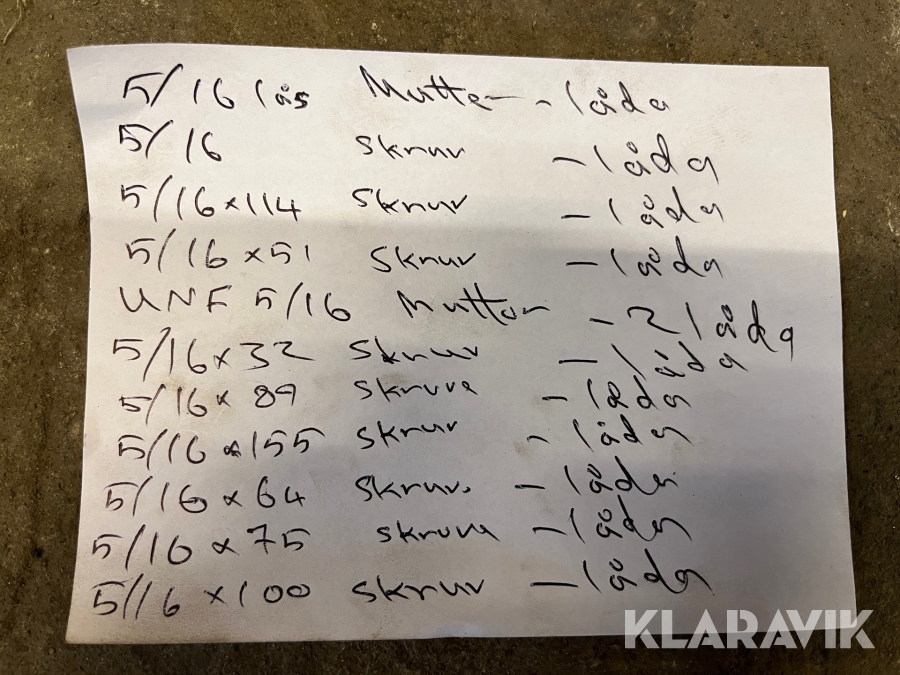 5/16 lås Mutter - låda
5/16 skruv - låda
5/16 x 114 skruv - låda
5/16 x 51 skruv - låda
UNF 5/16 Mutter - 2 låda
5/16 x 32 skruv - låda
5/16 x 89 skruve - låda
5/16 x 155 skruv - låda
5/16 x 64 skruv. - låda
5/16 x 75 skruve - låda
5/16 x 100 skruv - låda
KLARAVIK